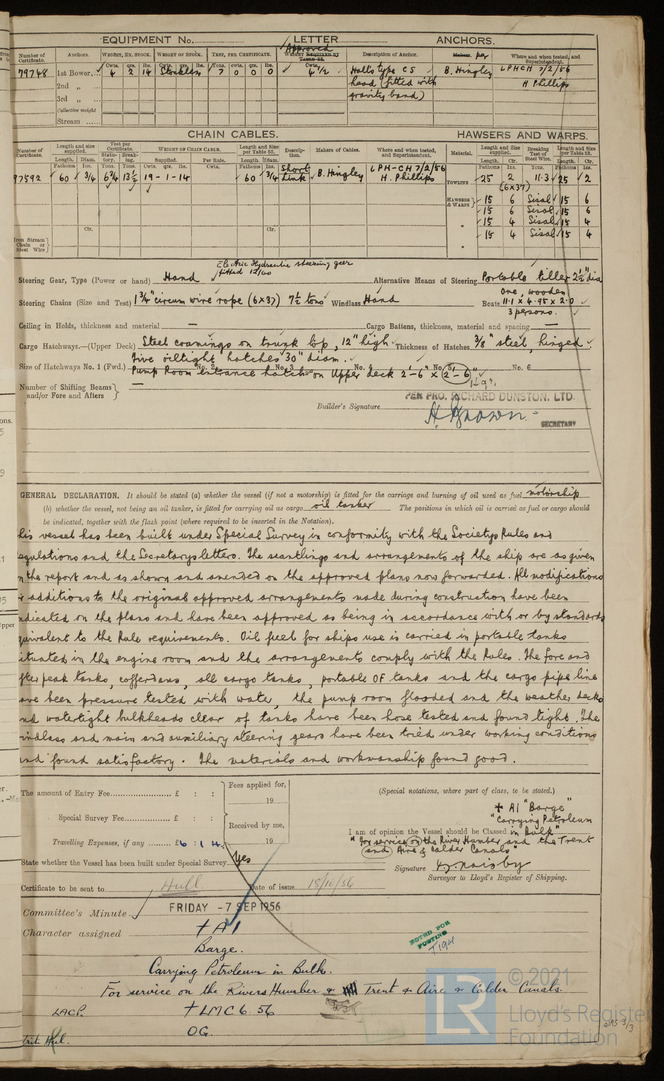 EQUIPMENT No. LETTER ANCHORS.
Number of Certificate. Anchors. WEIGHT, EX. STOCK. WEIGHT OF STOCK. TEST, PER CERTIFICATE. Approved Description of Anchor. Makers. Where and when tested, and Superintendent.
Cwts. qrs. lbs. Cwts. qrs. lbs. Tons. cwts. qrs. lbs. Cwts.
79748 1st Bower 4 2 14 Stockless 7 0 0 0 4 1/2 Halls type CS B. Hingley LPHCH 7/2/56
2nd „ head (fitted with H. Phillips
3rd „ gravity band)
Collective weight
Stream
CHAIN CABLES. HAWSERS AND WARPS.
Number of Certificate. Length and size supplied. Test per Certificate. WEIGHT OF CHAIN CABLE. Length and Size per Table 53. Description. Makers of Cables. Where and when tested, and Superintendent. Material. Length and Size supplied. Breaking Test of Steel Wire. Length and size
Length. Diam. Supplied. Per Rule. Length. Diam. Length. Cir.
Fathoms Ins. Tons. Tons. Cwts. qrs. lbs. Cwts. Fathoms Ins. Fathoms Ins. Tons. Fathoms Ins.
77592 60 3/4 6 3/4 13 1/2 19-1-14 60 3/4 Short Link B. Hingley LPH-CH 7/2/56 H. Phillips TOWLINE 25 2 11·3 25 2
(6x37)
HAWSERS & WARPS 15 6 Sisal 15 6
15 6 Sisal 15 6
15 4 Sisal 15 4
15 4 Sisal 15 4
Iron Stream Chain or Steel Wire Cir. Cir.
Electric Hydraulic steering gear
fitted 12/60
Steering Gear, Type (Power or hand) Hand Alternative Means of Steering Portable tiller 2 1/2" dia
Steering Chains (Size and Test) 1 3/4" circum wire rope (6x37) 7 1/2 tons Windlass Hand Boats One, wooden 11·1 x 4·95 x 2·0
3 persons.
Ceiling in Holds, thickness and material — Cargo Battens, thickness, material and spacing —
Cargo Hatchways.—(Upper Deck) Steel coamings on trunk top, 12" high Thickness of Hatches 3/8" steel, hinged
Five oiltight hatches 30" diam.
Size of Hatchways No. 1 (Fwd.) Pump Room entrance hatch on Upper deck 2'-6" x 2'-6" No. 6
1'-9"
Number of Shifting Beams and/or Fore and Afters —
PER PRO. RICHARD DUNSTON, LTD.
Builder's Signature H. Brown
SECRETARY
GENERAL DECLARATION. It should be stated (a) whether the vessel (if not a motorship) is fitted for the carriage and burning of oil used as fuel motorship
(b) whether the vessel, not being an oil tanker, is fitted for carrying oil as cargo oil tanker The positions in which oil is carried as fuel or cargo should
be indicated, together with the flash point (where required to be inserted in the Notation).
his vessel has been built under Special Survey in conformity with the Societys Rules and
egulations and the Secretarys letters. The scantlings and arrangements of the ship are as given
n the report and as shown and amended on the approved plans now forwarded. All modifications
r additions to the original approved arrangements made during construction have been
ndicated on the plans and have been approved as being in accordance with or by standards
quivalent to the Rule requirements. Oil fuel for ships use is carried in portable tanks
ituated in the engine room and the arrangements comply with the Rules. The fore and
fter peak tanks, cofferdams, all cargo tanks, portable OF tanks and the cargo pipe line
ave been pressure tested with water, the pump room flooded and the weather decks
nd watertight bulkheads clear of tanks have been hose tested and found tight. The
indlass and main and auxiliary steering gears have been tried under working conditions
nd found satisfactory. The materials and workmanship found good.
The amount of Entry Fee £ : : Fees applied for, (Special notations, where part of class, to be stated.)
19 + A1 "Barge"
Special Survey Fee £ : : "Carrying Petroleum
Received by me, I am of opinion the Vessel should be Classed in Bulk"
Travelling Expenses, if any £6 : 14 19 "For service on the River Humber and the Trent
and Aire & Calder Canals"
State whether the Vessel has been built under Special Survey Yes Signature
Surveyor to Lloyd's Register of Shipping.
Certificate to be sent to Hull Date of issue 15/10/56
Committee's Minute FRIDAY -7 SEP 1956
Character assigned + A1
NOTED FOR
POSTING
Barge.
Carrying Petroleum in Bulk.
For service on the Rivers Humber & Trent & Aire & Calder Canals.
LACP. + LMC 6.56
OG.
LR
© 2021
Lloyd's Register
Foundation